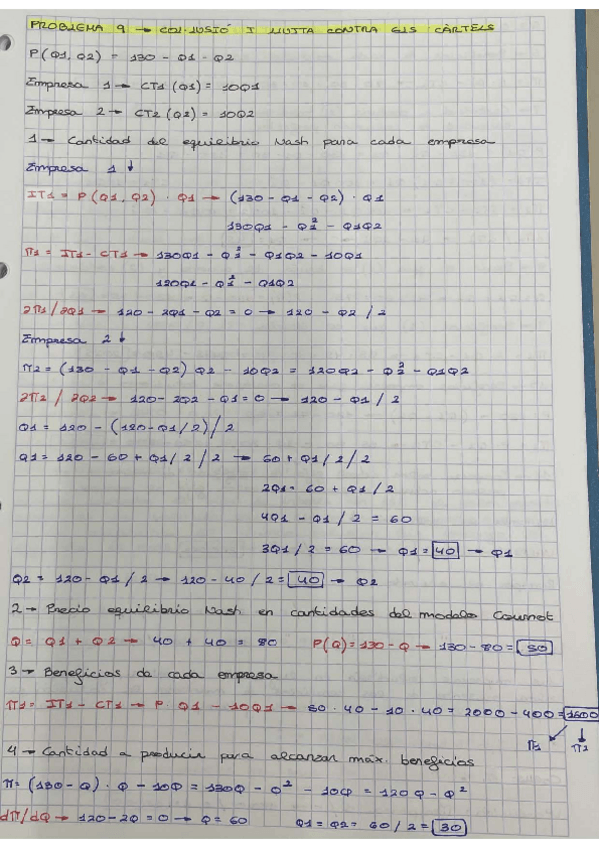 PROBLEMA 9 → COL·LUSIÓ I LLUITA CONTRA ELS CÀRTELS
P(Q1, Q2) = 130 - Q1 - Q2
Empresa 1 → CT1 (Q1) = 10Q1
Empresa 2 → CT2 (Q2) = 10Q2
1 → Cantidad del equilibrio Nash para cada empresa
Empresa 1 ↓
IT1 = P(Q1, Q2) · Q1 → (130 - Q1 - Q2) · Q1
130Q1 - Q1² - Q1Q2
π1 = IT1 - CT1 → 130Q1 - Q1² - Q1Q2 - 10Q1
120Q1 - Q1² - Q1Q2
∂π1/∂Q1 → 120 - 2Q1 - Q2 = 0 → 120 - Q2 / 2
Empresa 2 ↓
π2 = (130 - Q1 - Q2) Q2 - 10Q2 = 120Q2 - Q2² - Q1Q2
∂π2 / ∂Q2 → 120 - 2Q2 - Q1 = 0 → 120 - Q1 / 2
Q1 = 120 - (120 - Q1/2) / 2
Q1 = 120 - 60 + Q1 / 2 / 2 → 60 + Q1 / 2 / 2
2Q1 = 60 + Q1 / 2
4Q1 - Q1 / 2 = 60
3Q1 / 2 = 60 → Q1 = 40 → Q1
Q2 = 120 - Q1 / 2 → 120 - 40 / 2 = 40 → Q2
2 → Precio equilibrio Nash en cantidades del modelo Cournot
Q = Q1 + Q2 → 40 + 40 = 80 P(Q) = 130 - Q → 130 - 80 = 50
3 → Beneficios de cada empresa
π1 = IT1 - CT1 → P · Q1 - 10Q1 → 50 · 40 - 10 · 40 = 2000 - 400 = 1600
π1 π2
4 → Cantidad a producir para alcanzar máx. beneficios
π = (130 - Q) · Q - 10Q = 130Q - Q² - 10Q = 120Q - Q²
dπ/dQ → 120 - 2Q = 0 → Q = 60 Q1 = Q2 = 60 / 2 = 30